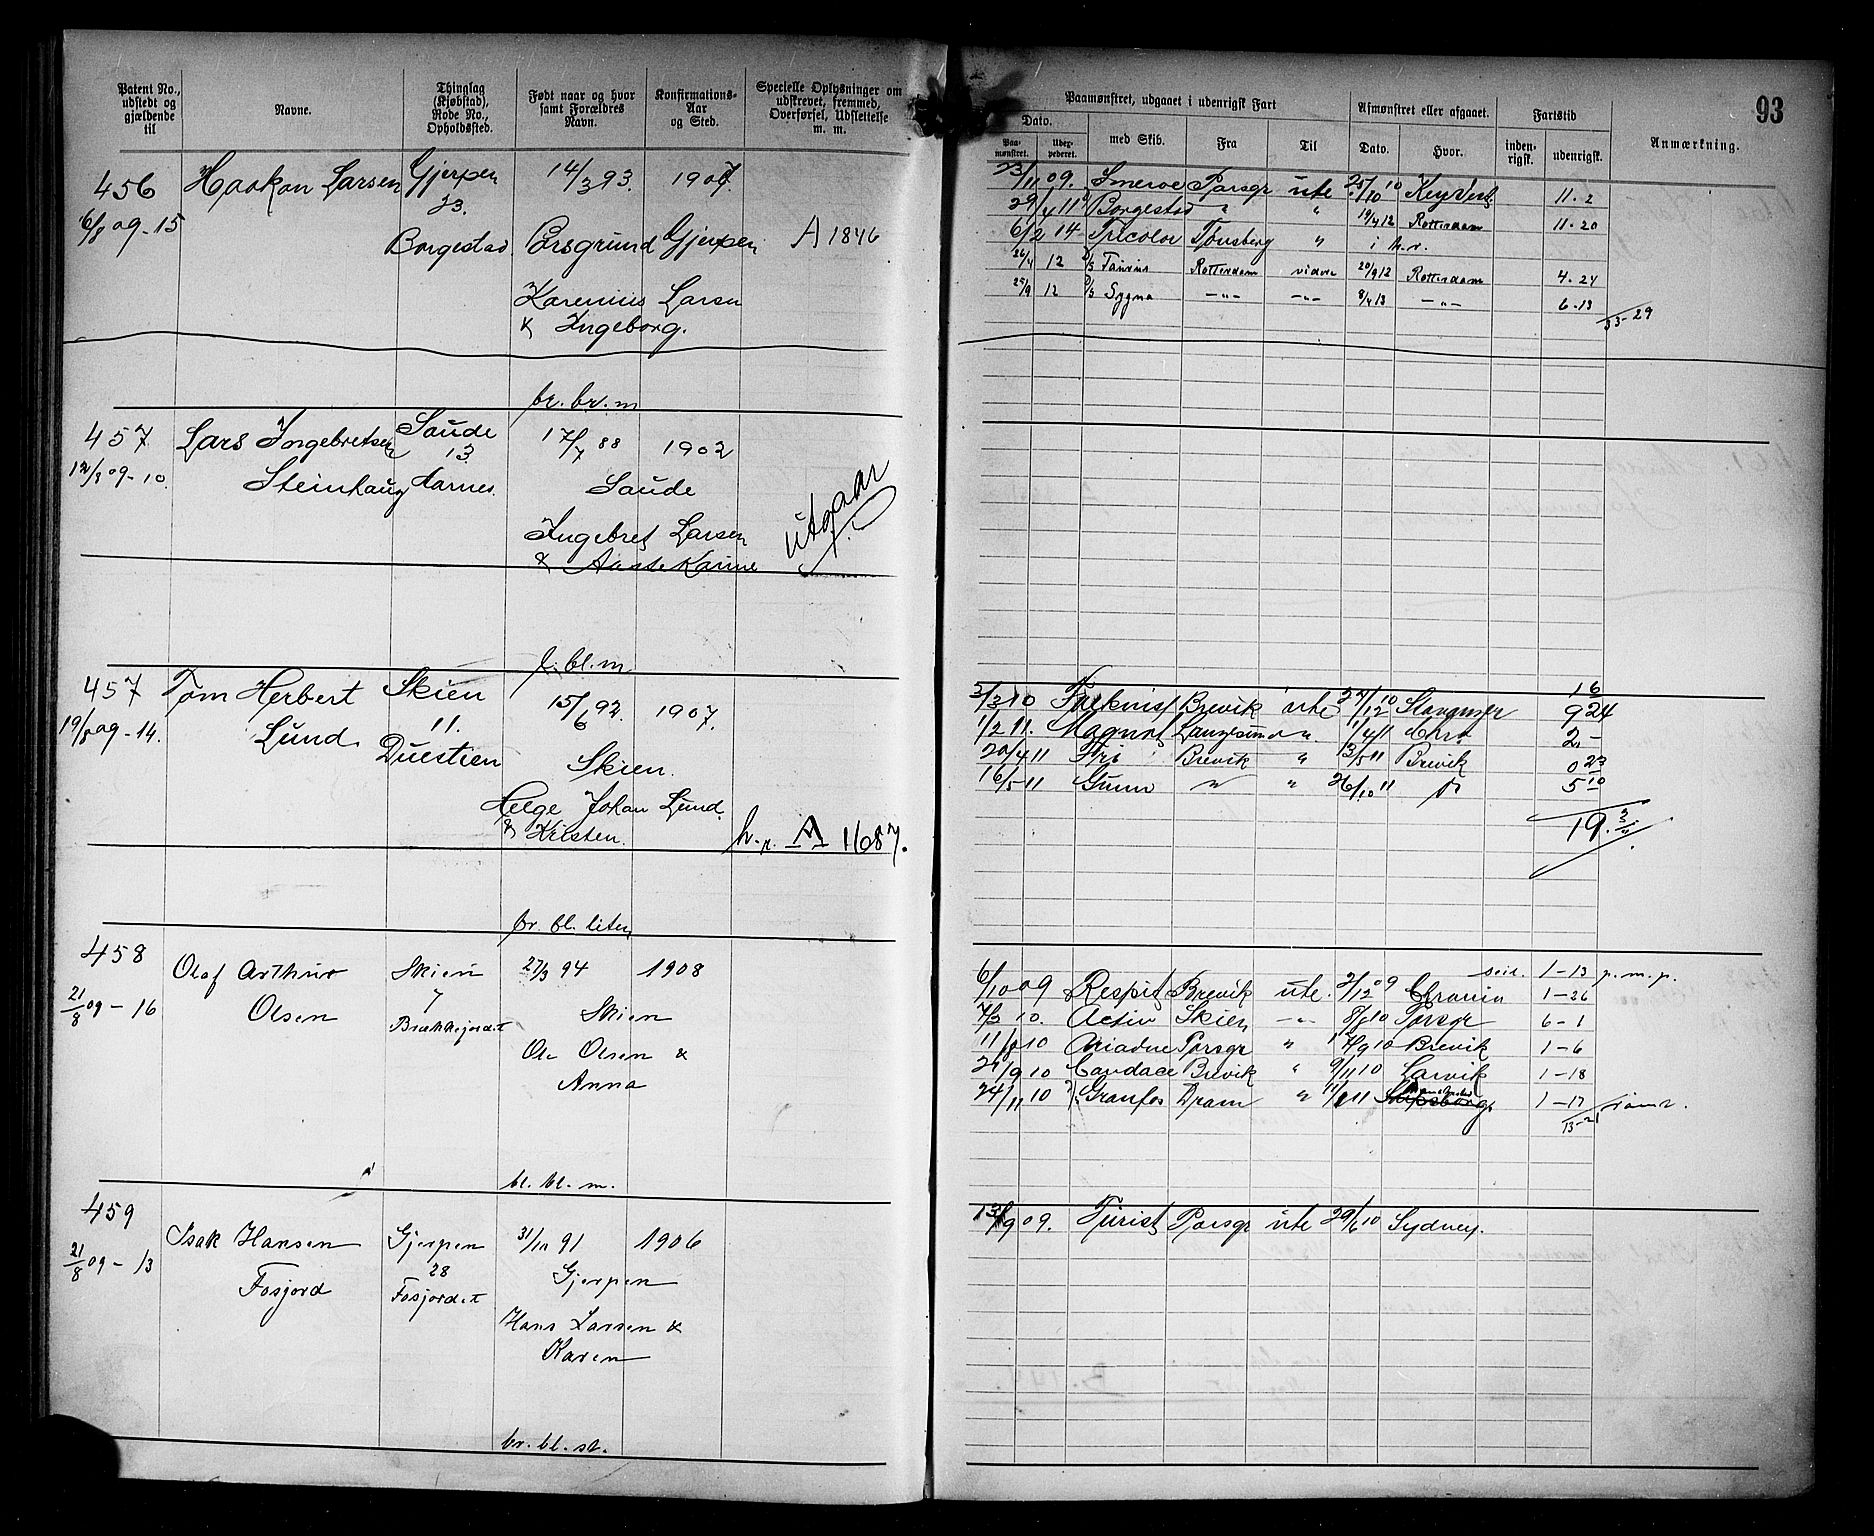 Patent No., udstedt og gjældende til
Navne.
Thinglag (Kjøbstad), Rode No., Opholdssted.
Født naar og hvor samt Forældres Navn.
Konfirmations-Aar og Sted.
Specielle Oplysninger om udskrevet, fremmed, Overførsel, Udslettelse m. m.
Paamønstret, udgaaet i udenrigsk Fart
Afmønstret eller afgaaet.
Fartstid
Anmærkning.
93
Dato.
Paa-mønstret.
med Skib.
Fra
Til
Dato.
Hvor.
inden-rigsk.
udenrigsk.
456 Haakon Larsen Gjerpen 14/3 93. 1907.
6/8 09-15 23.
Borgestad Porsgrund Gjerpen A 1846
Karenius Larsen
& Ingeborg.
br. br. m
23/11 09. Porsgr ute 25/10 10 Key Vest 11-2
29/4 11 Borgestad " " 19/4 12 Rotterdam 11-20
6/2 14 Tricolor Tønsberg " i h.r.
26/4 12 Rotterdam videre 20/9 12 Rotterdam 4-24
25/9 12 D/S Sygna -"- -"- 8/4 13 -"- 6-13
33-29
457 Lars Ingebretsen Saude 17/7 88 1902
12/8 09-10. 13.
Steinhaug Aarnes. Saude
Ingebret Larsen utgaar
& Aaste Karine
l. bl. m
457 Tom Herbert Skien 15/6 92. 1907.
19/8 09-14. Lund 11.
Duestien Skien.
Helge Johan Lund
& Kristen. h.r. A 1687.
br. bl. liten
16
3/3 10 Brevik ute 22/12 10 Stavanger 9 24
1/2 11. Magna Langesund " 1/4 11 2-
20/4 11 Fri Brevik " 13/5 11 Brevik 0 23
16/5 11 Gunn " " 26/10 11 5 10
19.
458 Olaf Arthur Skien 27/3 94 1908
21/8 09-16 Olsen 7
Brækkejordet Skien
Ole Olsen &
Anna
bl. bl. m.
seil. 1-13 p.m.p.
6/10 09 Respit Brevik ute. 2/12 09 1-26
7/3 10. Activ Skien -"- 8/8 10 Porsgr 6-1
11/8 10 Ariadne Porsgr " 14/9 10 Brevik 1-6
24/9 10 Candace Brevik " 9/11 10 Larvik 1-18
24/11 10 Granfos Dram " 11/1 11 1-17
13-21
459 Isak Hansen Gjerpen 31/10 91 1906
21/8 09-13 28
Fosjord Fosjordet Gjerpen
Hans Larsen &
Karen
br. bl. st.
13/9 09. Turist Porsgr ute 29/6 10 Sydney.